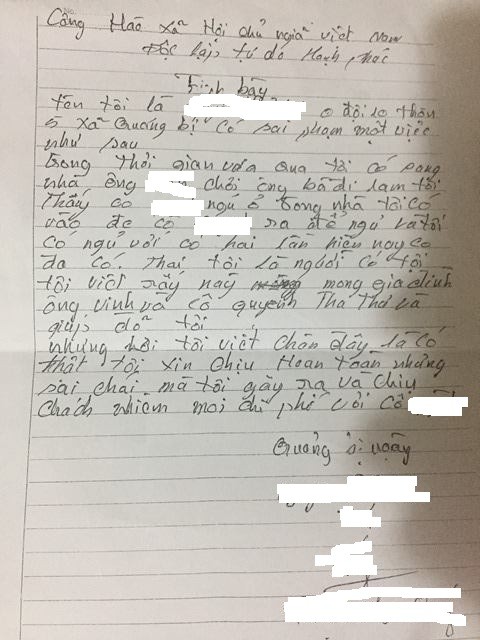 Công Hao xã Hội chủ nghiã việt Nam
Độc lập, tự do Hạnh phúc
Trình bầy
Tên tôi là ở đội 10 thôn
5 xã Quảng bị có sai phạm một việc
như sau
trong Thời gian vưa qua tôi có sang
nhà ông chơi ông bà đi lam tôi
Thấy co ngu ở trong nhà tôi có
vào đe cô ra để ngủ và tôi
có ngủ với cô hai lần hiện nay co
đa có. Thai tôi là người có tội
tôi viết nay mong gia đình
ông vinh và cô quyên Tha Thơ và
giúp đỡ tôi
nhưng nời tôi viết chên đây là có
thật tôi xin chịu Hoan toan nhưng
sai chai mà tôi gây ra va chịu
chách nhiệm moi chi phế với cô
Quảng bị ngày